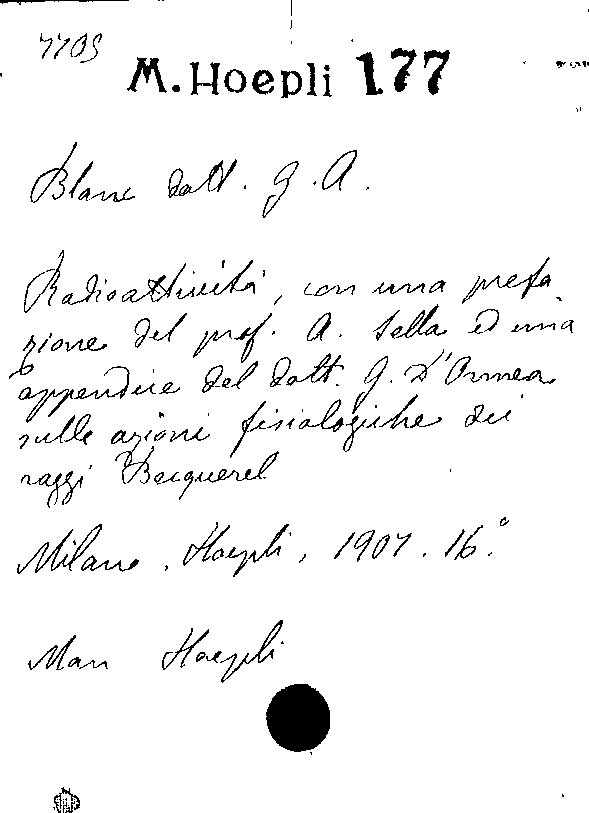 7709
M. Hoepli 177
Blanc dott. G. A.
Radioattività, con una prefa
zione del prof. A. Sella ed una
appendice del dott. G. D'Ormea
sulle azioni fisiologiche dei
raggi Becquerel
Milano, Hoepli, 1907. 16.°
Man Hoepli